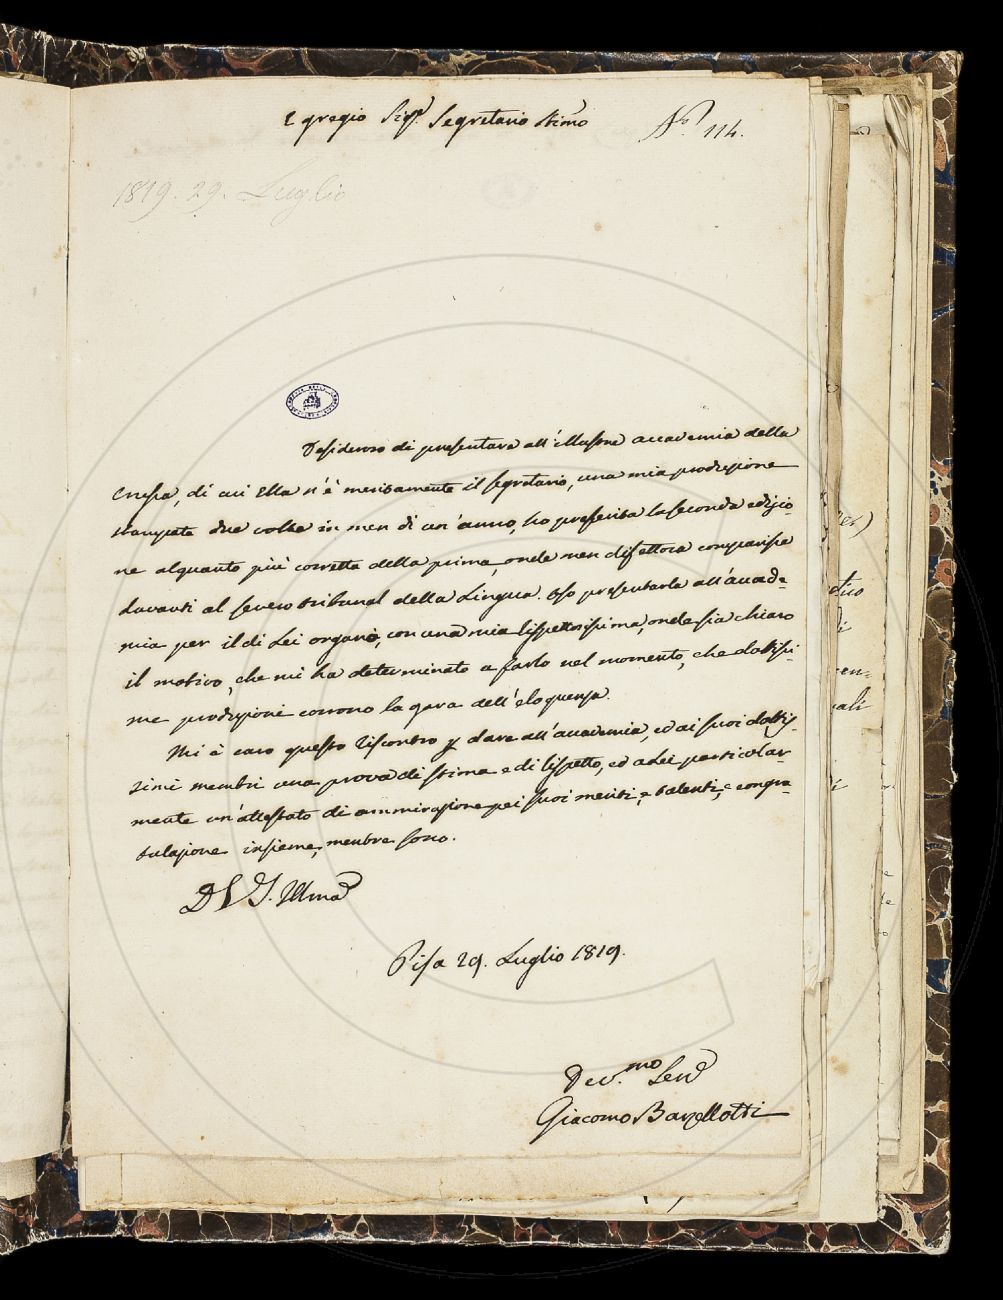 Egregio Sigre Segretario Stimo
No. 114.
1819. 29. Luglio
Desideroso di presentare all'illustre accademia della
Crusca, di cui Ella n'è meritamente il segretario, una mia produzione
stampata due volte in men di un'anno, ho preferita la seconda edizio-
ne alquanto più corretta della prima, onde men difettosa comparisse
davanti al severo tribunal della Lingua. Oso presentarla all'accade-
mia per il di Lei organo, con una mia rispettosissima, onde sia chiaro
il motivo, che mi ha determinato a farlo nel momento, che dottissi-
me produzioni corrono la gara dell'eloquenza.
Mi è caro questo riscontro p dare all'accademia, ed ai suoi dottis-
simi membri una prova di stima e di rispetto, ed a Lei particolar-
mente un'attestato di ammirazione pei suoi meriti, e talenti, e congra-
tulazione insieme, mentre sono.
D V S. Illma
Pisa 29. Luglio 1819.
Dev.mo Serv
Giacomo Barzellotti